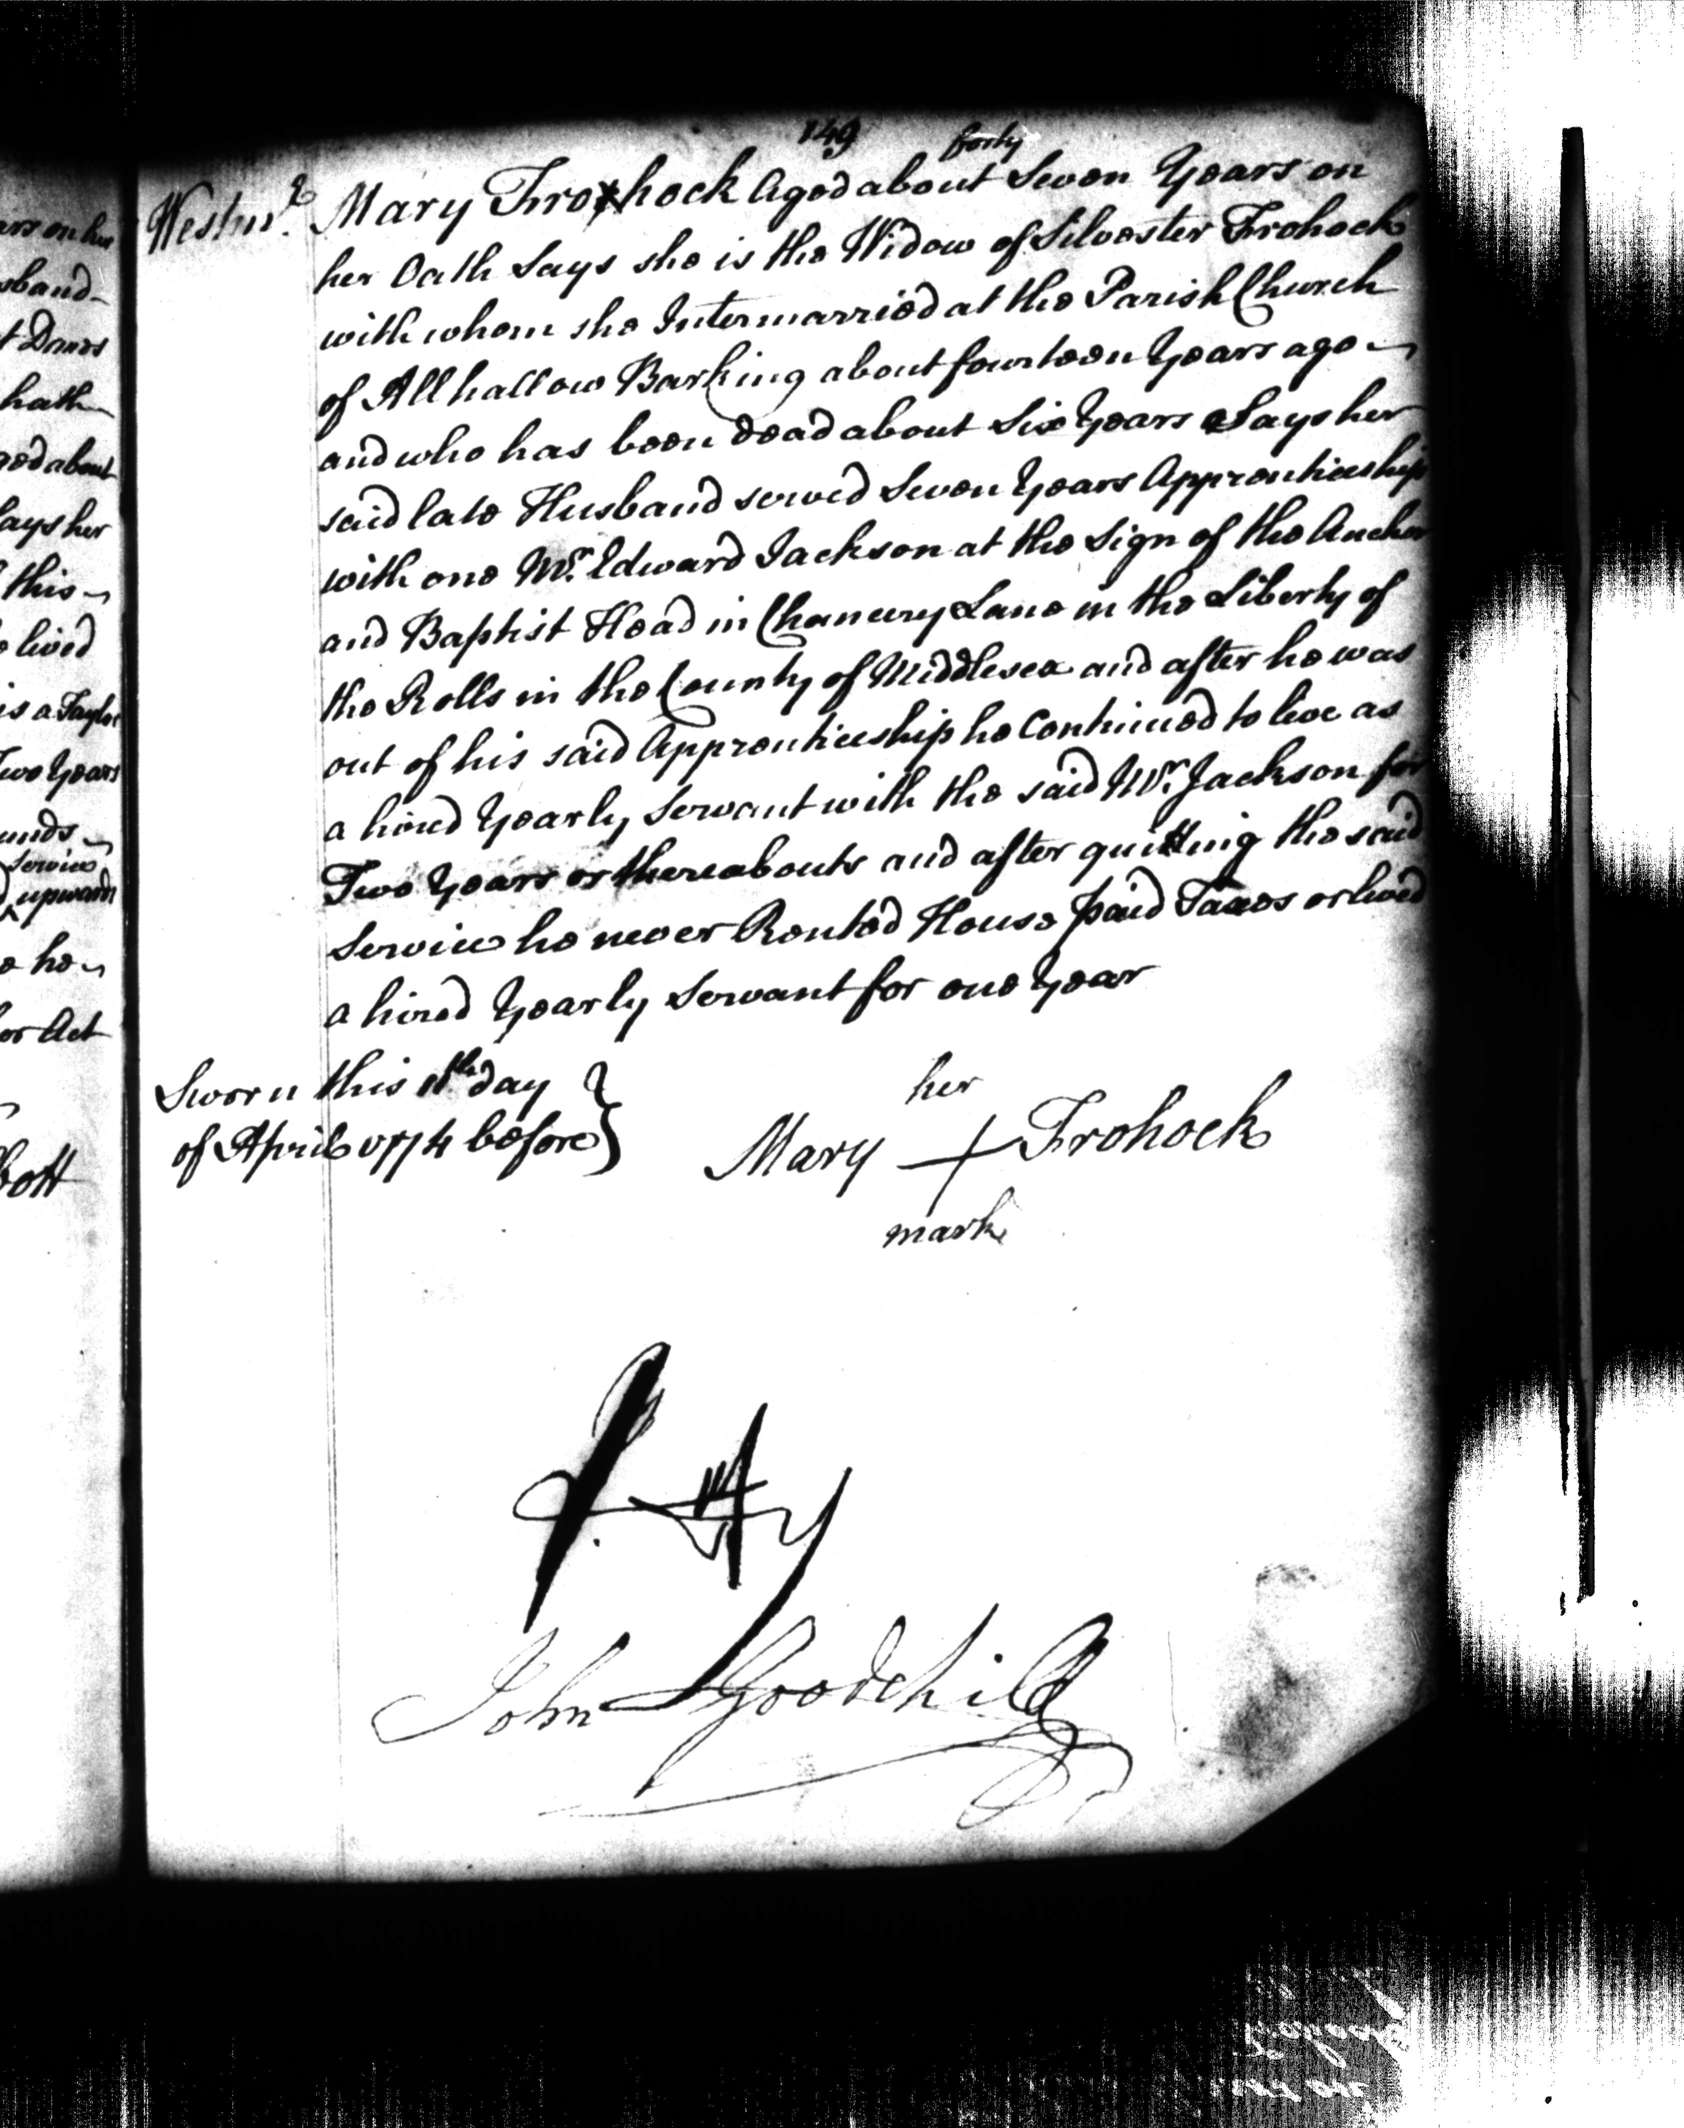 149
forty
Westmr. Mary Frohock Aged about Seven Years on
her Oath Says she is the Widow of Silvester Frohock
with whom she Intermarried at the Parish Church
of Allhallow Barking about fourteen Years ago
and who has been dead about Six Years Says her
said late Husband served Seven Years Apprenticeship
with one Mr. Edward Jackson at the Sign of the Anchor
and Baptist Head in Chancery Lane in the Liberty of
the Rolls in the County of Middlesex and after he was
out of his said Apprenticeship he Continued to live as
a hired Yearly Servant with the said Mr. Jackson for
Two Years or thereabouts and after quitting the said
Service he never Rented House paid Taxes or lived
a hired Yearly Servant for one Year
Sworn this 11th day
of April 1774 before
her
Mary + Frohock
mark
John Goodchild
ars on her
sband
hath
aged about
Says her
this
lived
is a Taylor
Two Years
Service
upwards
he
or Act
bott